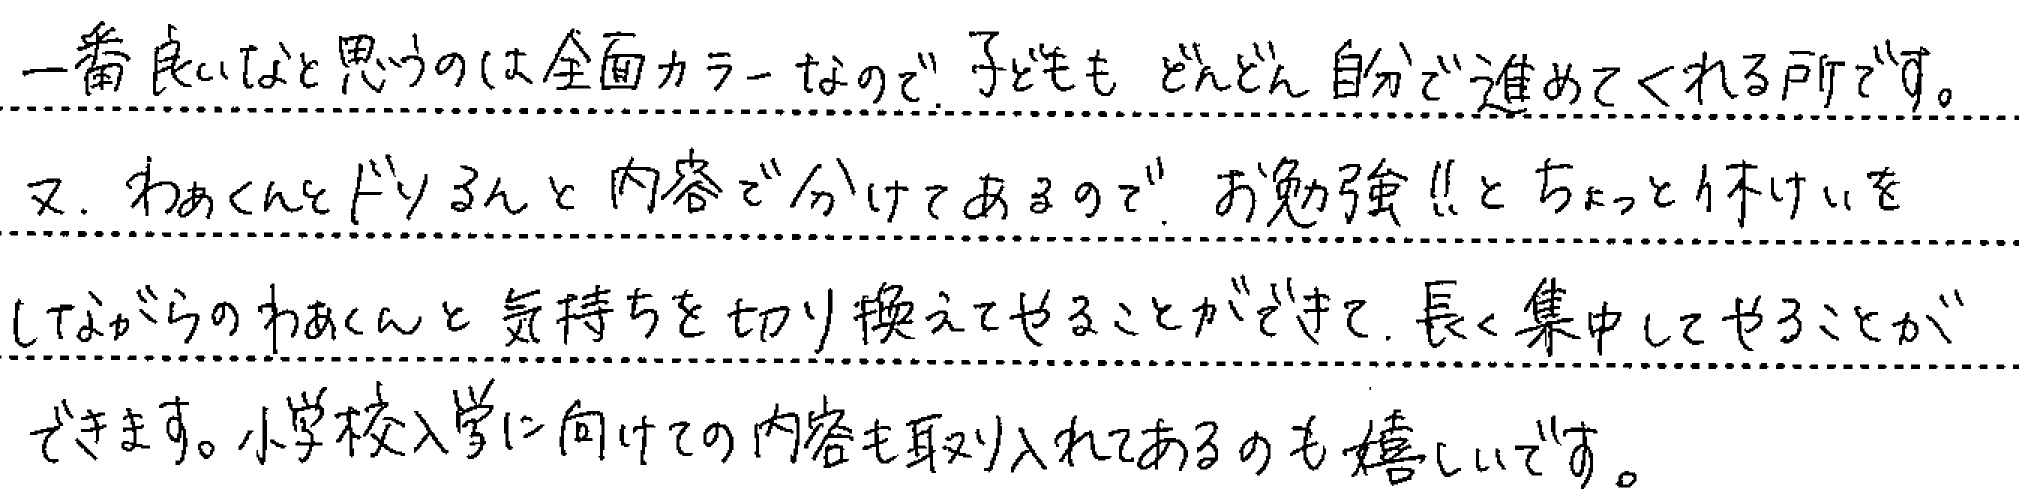 一番良いなと思うのは全面カラーなので、子どももどんどん自分で進めてくれる所です。
又、わぁくんとドリるんと内容で分けてあるので、お勉強!!とちょっと休けいを
しながらのわぁくんと気持ちを切り換えてやることができて、長く集中してやることが
できます。小学校入学に向けての内容も取り入れてあるのも嬉しいです。